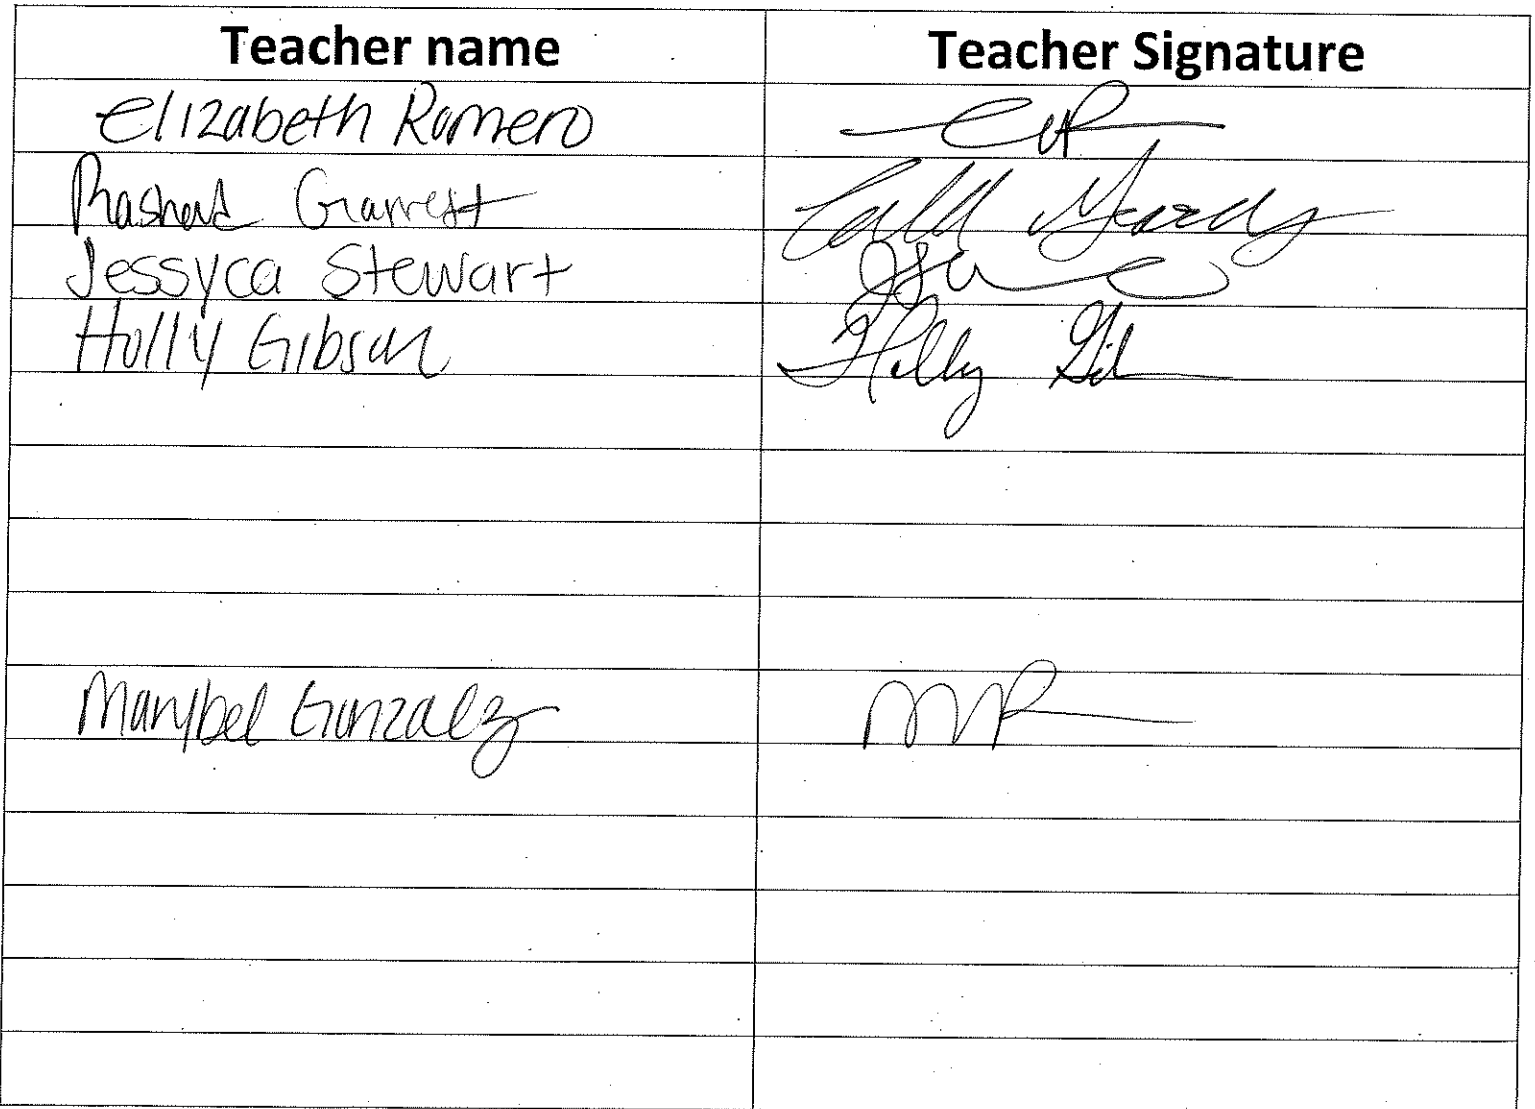 Teacher name Teacher Signature
Elizabeth Romero
Rashard Garrett
Jessyca Stewart
Holly Gibson Holly
Marybel Gonzalez